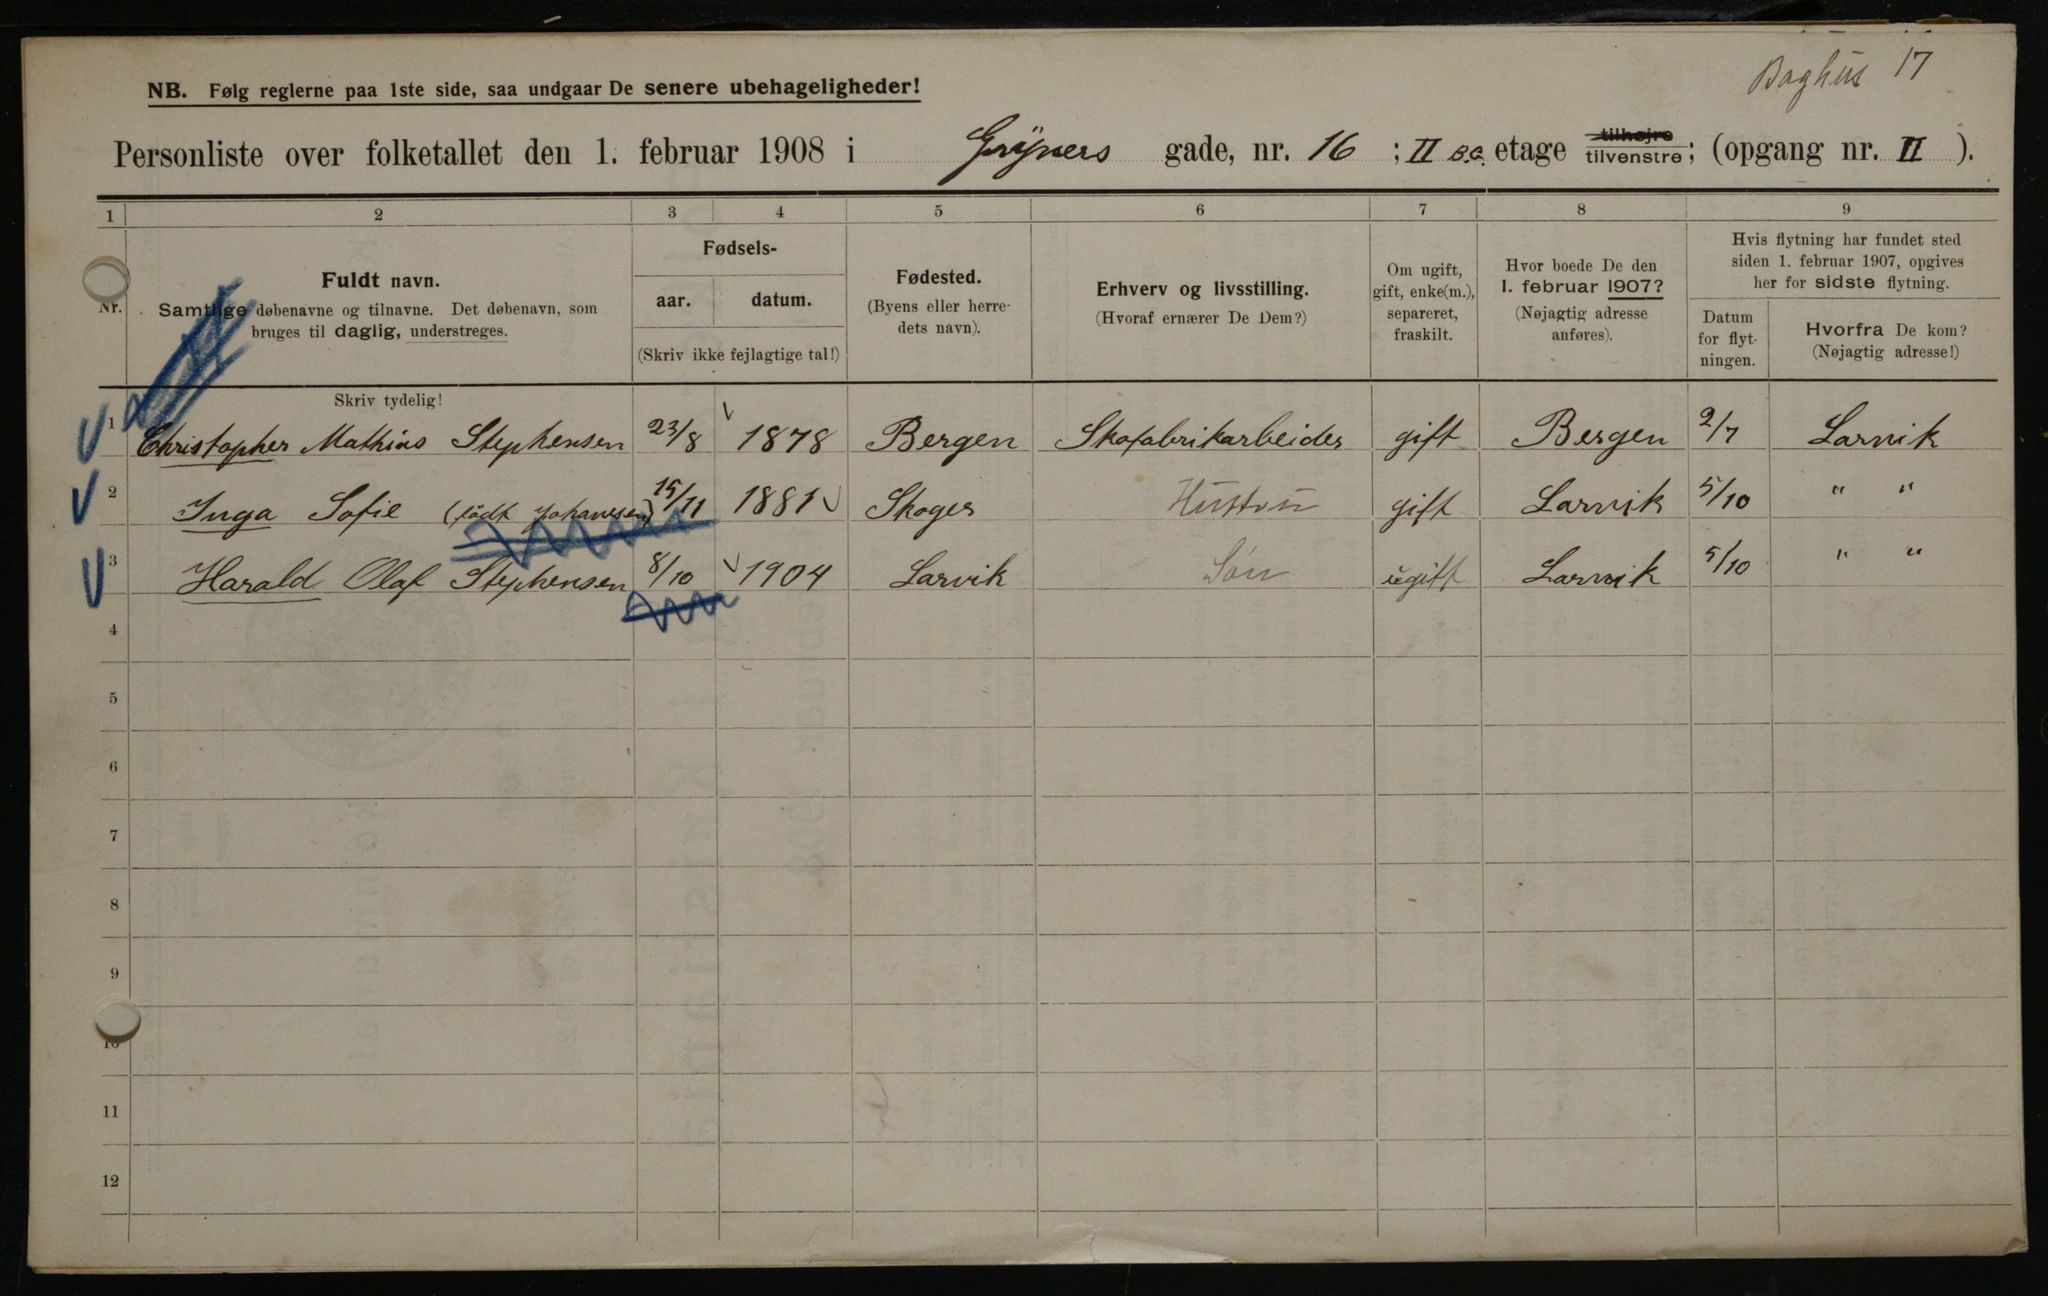 Baghus 17
NB. Følg reglerne paa 1ste side, saa undgaar De senere ubehageligheder!
Personliste over folketallet den 1. februar 1908 i Grÿners gade, nr. 16 ; II B.G. etage tilhøjre tilvenstre; (opgang nr. II ).
1 2 3 4 5 6 7 8 9
Nr.
Fuldt navn.
Samtlige døbenavne og tilnavne. Det døbenavn, som
bruges til daglig, understreges.
Fødsels-
aar. datum.
(Skriv ikke fejlagtige tal!)
Fødested.
(Byens eller herre-
dets navn).
Erhverv og livsstilling.
(Hvoraf ernærer De Dem?)
Om ugift,
gift, enke(m.),
separeret,
fraskilt.
Hvor boede De den
1. februar 1907?
(Nøjagtig adresse
anføres).
Hvis flytning har fundet sted
siden 1. februar 1907, opgives
her for sidste flytning.
Datum
for flyt-
ningen.
Hvorfra De kom?
(Nøjagtig adresse!)
Skriv tydelig!
1 Christopher Mathias Stephensen 23/8 1878 Bergen Skofabrikarbeider gift Bergen 2/7 Larvik
2 Inga Sofie (født Johanesen) 15/11 1881 Skoger Hustru gift Larvik 5/10 " "
3 Harald Olaf Stephensen 8/10 1904 Larvik Søn ugift Larvik 5/10 " "
4
5
6
7
8
9
10
11
12